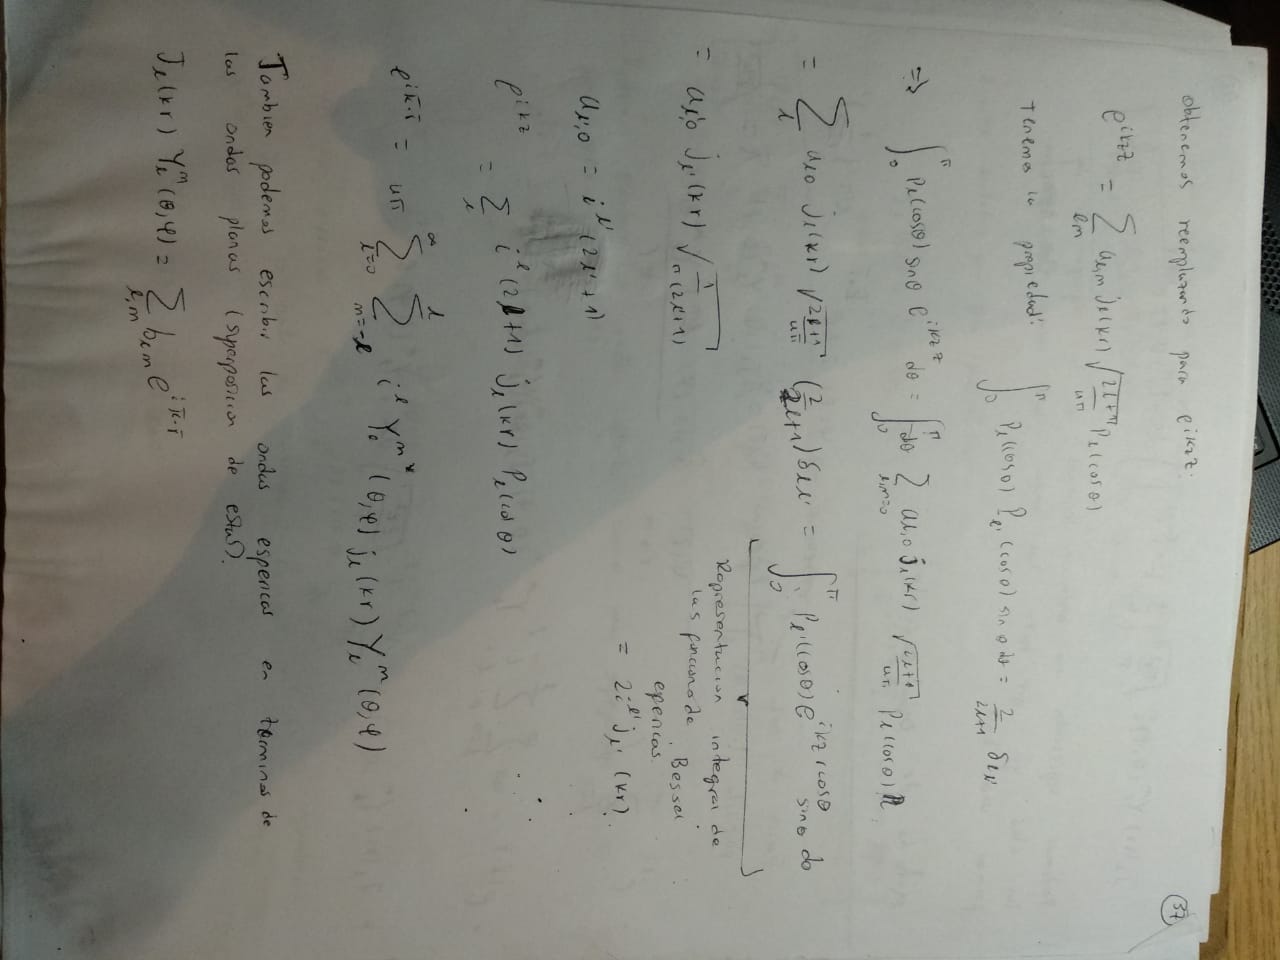 37
obtenemos reemplazando para e^{ikz}:
e^{ikz} = Σ_{lm} a_{l,m} j_l(kr) √(2l+1/4π) P_l(cosθ)
Tenemos la propiedad: ∫_0^π P_l(cosθ) P_{l'}(cosθ) sinθ dθ = 2/(2l+1) δ_{ll'}
=> ∫_0^π P_l(cosθ) sinθ e^{ikz} dθ = ∫_0^π dθ Σ_{l,m=0} a_{l,0} j_l(kr) √(2l+1/4π) P_l(cosθ)
= Σ_l a_{l0} j_l(kr) √(2l+1/4π) (2/2l+1) δ_{ll'} = ∫_0^π P_{l'}(cosθ) e^{ikz(cosθ} sinθ dθ
Representacion integral de
las funcionede Bessel
esfericas.
= a_{l',0} j_{l'}(kr) √(1/π(2l+1)) = 2i^{l'} j_{l'}(kr)
a_{l',0} = i^{l'} (2l'+1)
e^{ikz} = Σ_l i^l (2l+1) j_l(kr) P_l(cosθ)
e^{ik̄·r̄} = 4π Σ_{l=0}^∞ Σ_{m=-l}^l i^l Y_l^{m*}(θ,φ) j_l(kr) Y_l^m(θ,φ)
Tambien podemos escribir las ondas esfericas en terminos de
las ondas planas (superposicion de estas).
J_l(kr) Y_l^m(θ,φ) = Σ_{l,m} b_{lm} e^{ik̄·r̄}